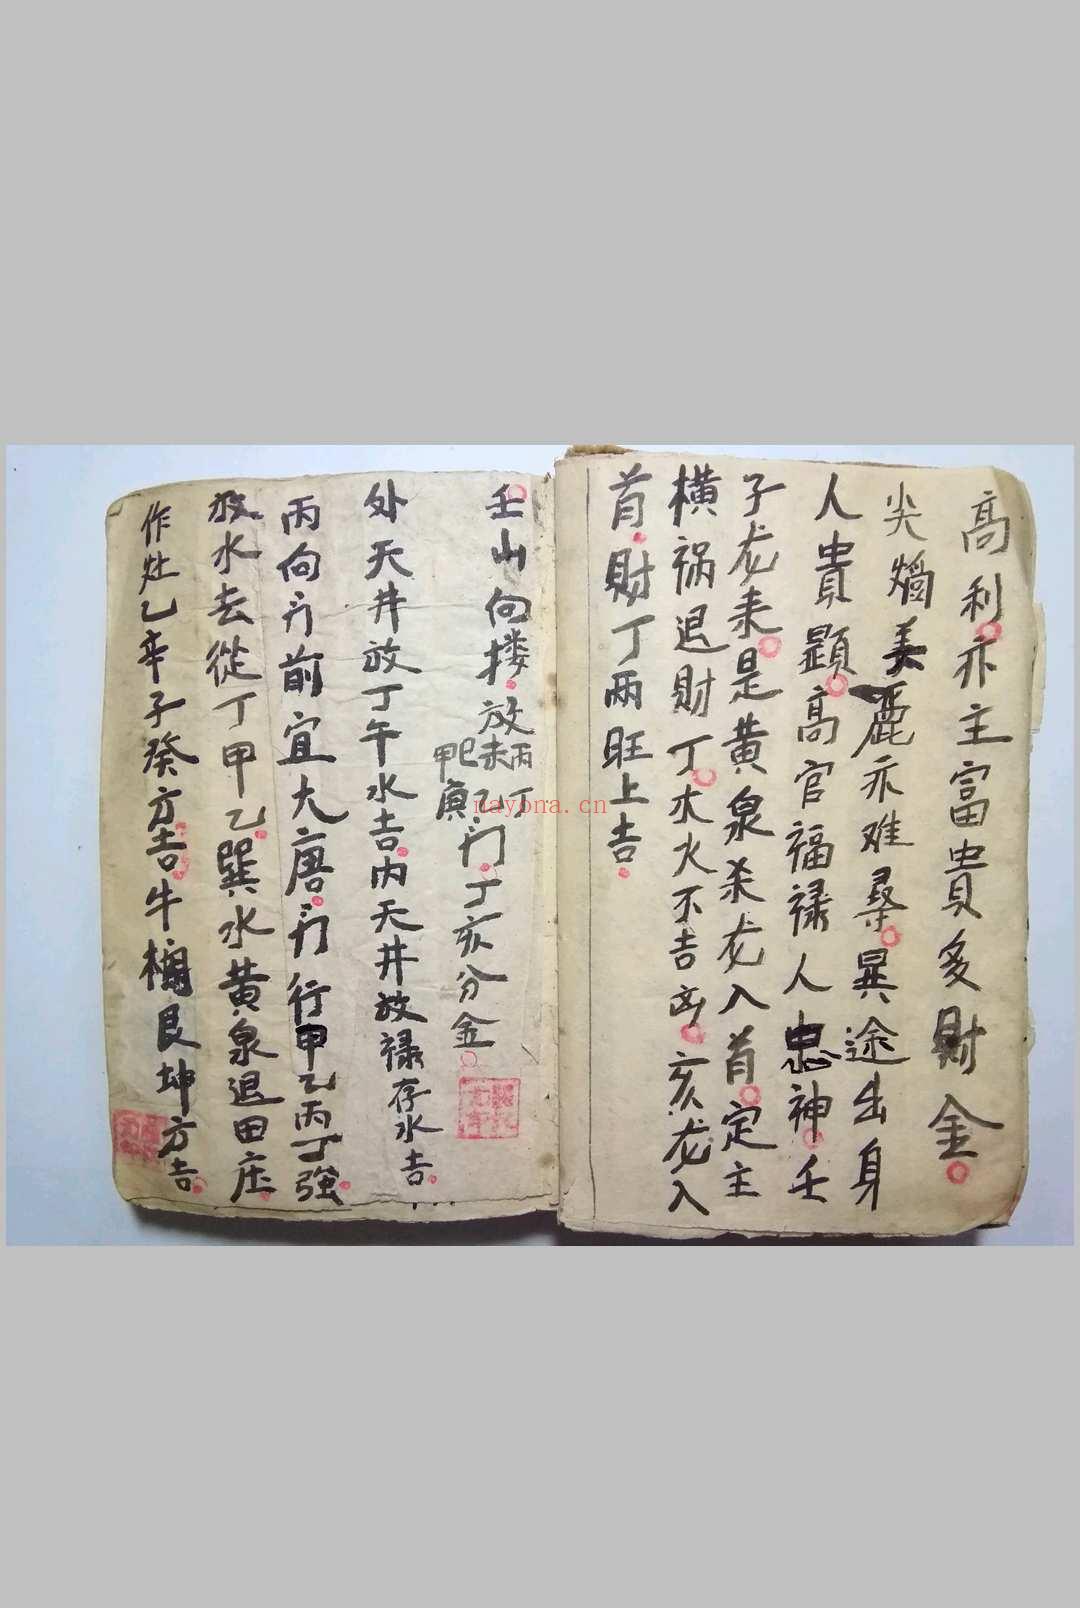 高利亦主富貴多財金
尖嫺美麗亦难尋異途出身
人貴顕高官福禄人忠神壬
子龙来是黄泉杀龙入首定主
橫祸退財丁水火不吉凶亥龙入
首財丁两旺上吉
壬山向楼放丙丁未乙巳庚甲门丁亥分金
处天井放丁午水吉内天井放禄存水吉
丙向门前宜大唐门行甲乙丙丁強
放水去從丁甲乙巽水黄泉退田庄
作灶乙辛子癸方吉牛欄艮坤方吉
nayona.cn